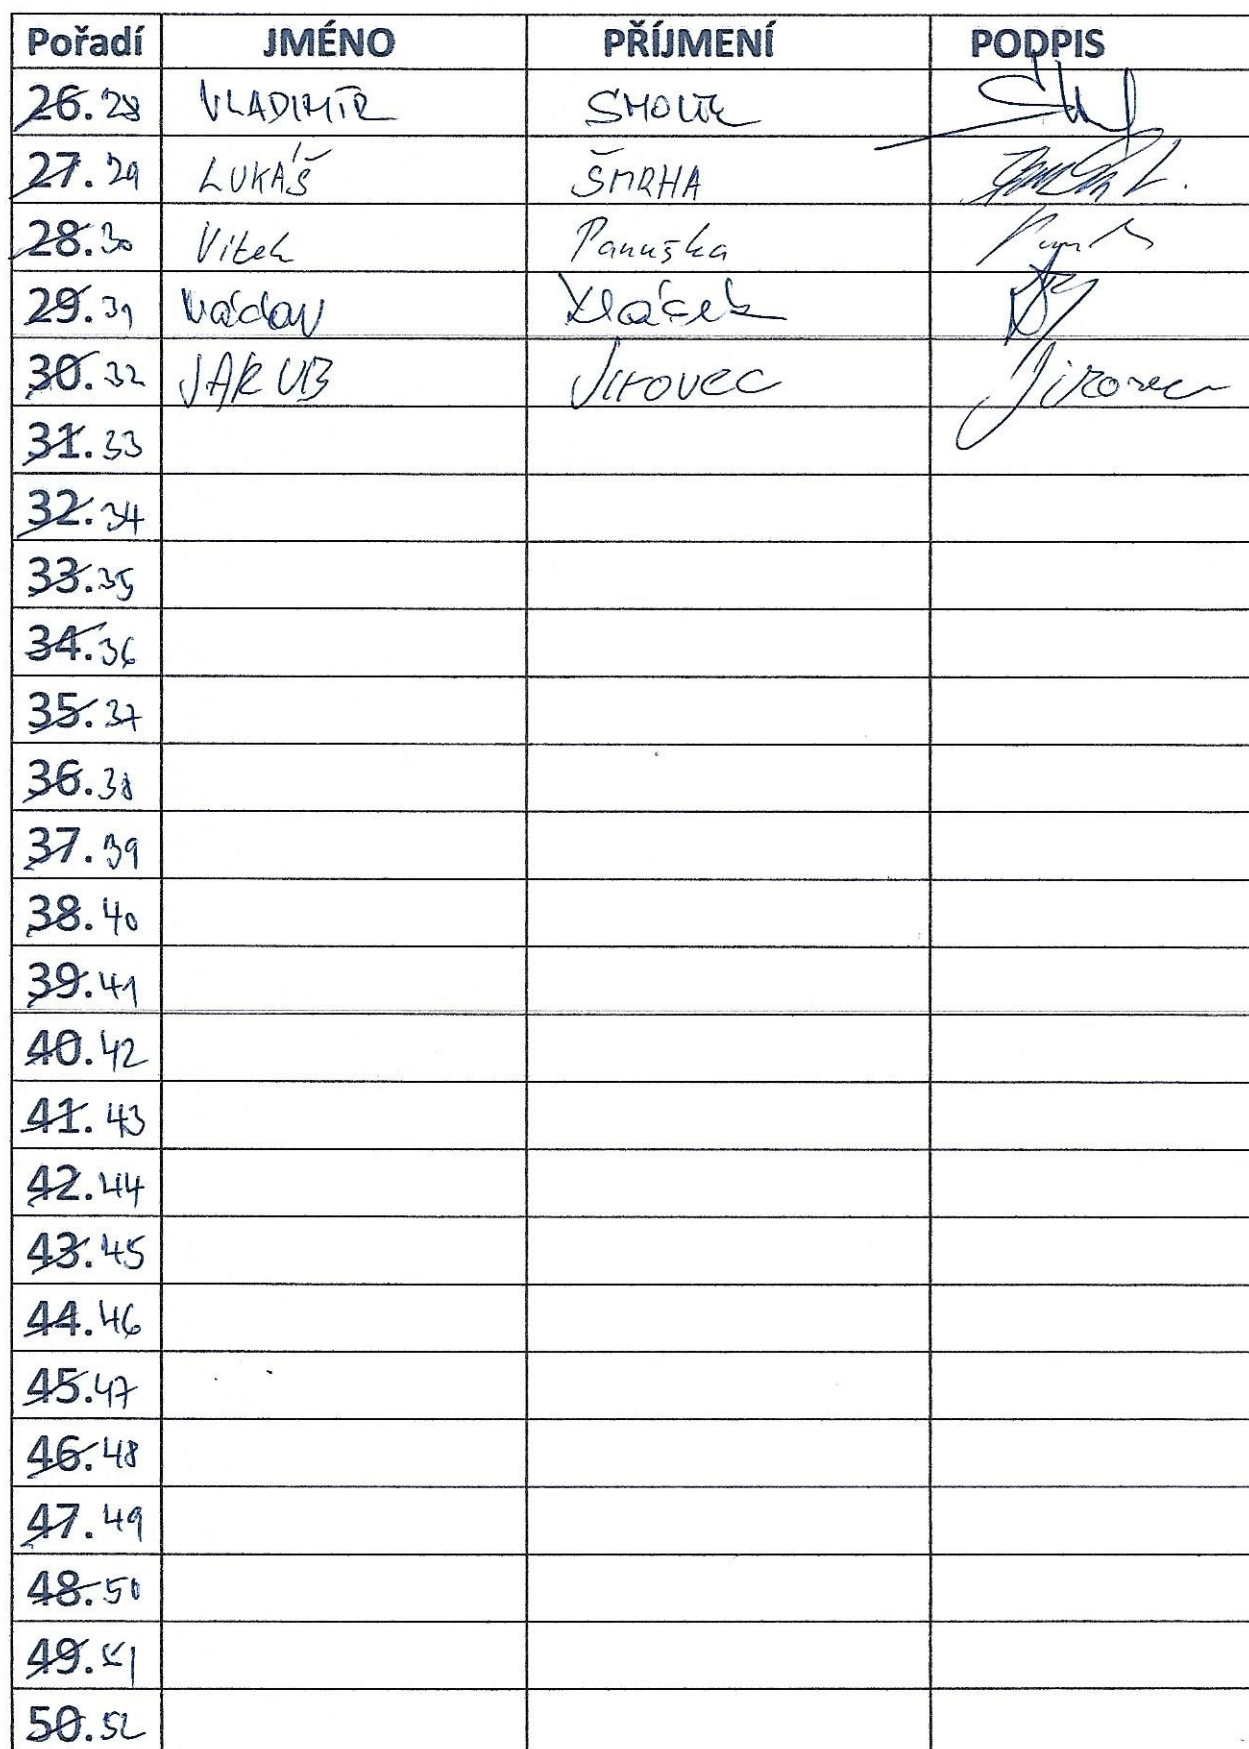 Pořadí JMÉNO PŘÍJMENÍ PODPIS
26. 28 VLADIMÍR SMOLÍK
27. 29 LUKÁŠ ŠMRHA
28. 30 Vitek Panuška
29. 31 Václav
30. 32 JAKUB Jirovec Jirovec
31. 33
32. 34
33. 35
34. 36
35. 37
36. 38
37. 39
38. 40
39. 41
40. 42
41. 43
42. 44
43. 45
44. 46
45. 47
46. 48
47. 49
48. 50
49. 51
50. 52